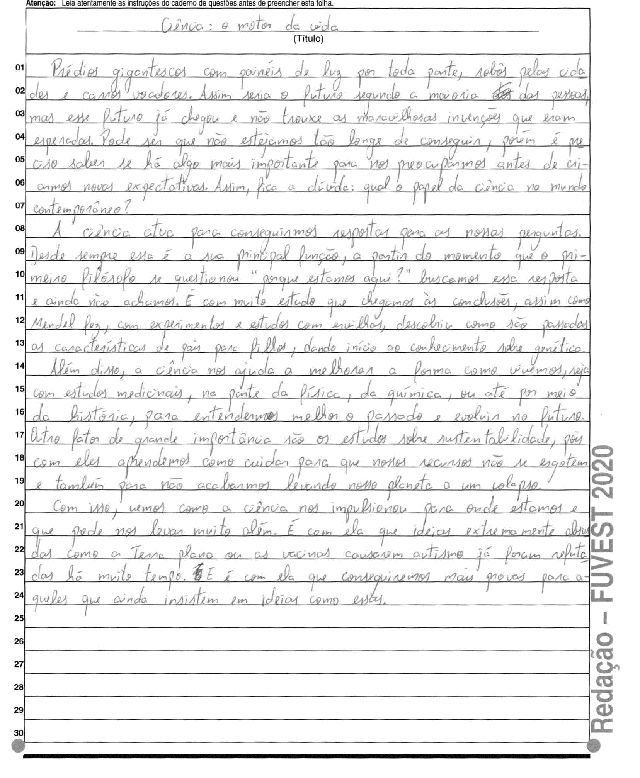 Atenção: Leia atentamente as instruções do caderno de questões antes de preencher esta folha.
Ciência: o motor da vida
(Título)
01 Prédios gigantescos com painéis de luz por toda parte, robôs pelas cida
02 des e carros voadores. Assim seria o futuro segundo a maioria das pessoas,
03 mas esse futuro já chegou e não trouxe as maravilhosas invenções que eram
04 esperadas. Pode ser que não estejamos tão longe de conseguir, porém é pre
05 ciso saber se há algo mais importante para nos preocuparmos antes de cri-
06 armos novas expectativas. Assim, fica a dúvida: qual o papel da ciência no mundo
07 contemporâneo?
08 A ciência atua para conseguirmos respostas para as nossas perguntas.
09 Desde sempre essa é a sua principal função, a partir do momento que o pri-
10 meiro filósofo se questionou "porque estamos aqui?" buscamos essa resposta
11 e ainda não achamos. É com muito estudo que chegamos às conclusões, assim como
12 Mendel fez, com experimentos e estudos com ervilhas, descobriu como são passadas
13 as características de pais para filhos, dando início ao conhecimento sobre genética.
14 Além disso, a ciência nos ajuda a melhorar a forma como vivemos, seja
15 com estudos medicinais, na parte da física, da química, ou até por meio
16 da história, para entendermos melhor o passado e evoluir no futuro.
17 Outro fator de grande importância são os estudos sobre sustentabilidade, pois
18 com eles aprendemos como cuidar para que nossos recursos não se esgotem
19 e também para não acabarmos levando nosso planeta a um colapso.
20 Com isso, vemos como a ciência nos impulsionou para onde estamos e
21 que pode nos levar muito além. É com ela que ideias extremamente absur
22 das como a Terra plana ou as vacinas causarem autismo já foram refuta
23 das há muito tempo. E é com ela que conseguiremos mais provas para a-
24 queles que ainda insistem em ideias como essas.
25
26
27
28
29
30
Redação – FUVEST 2020